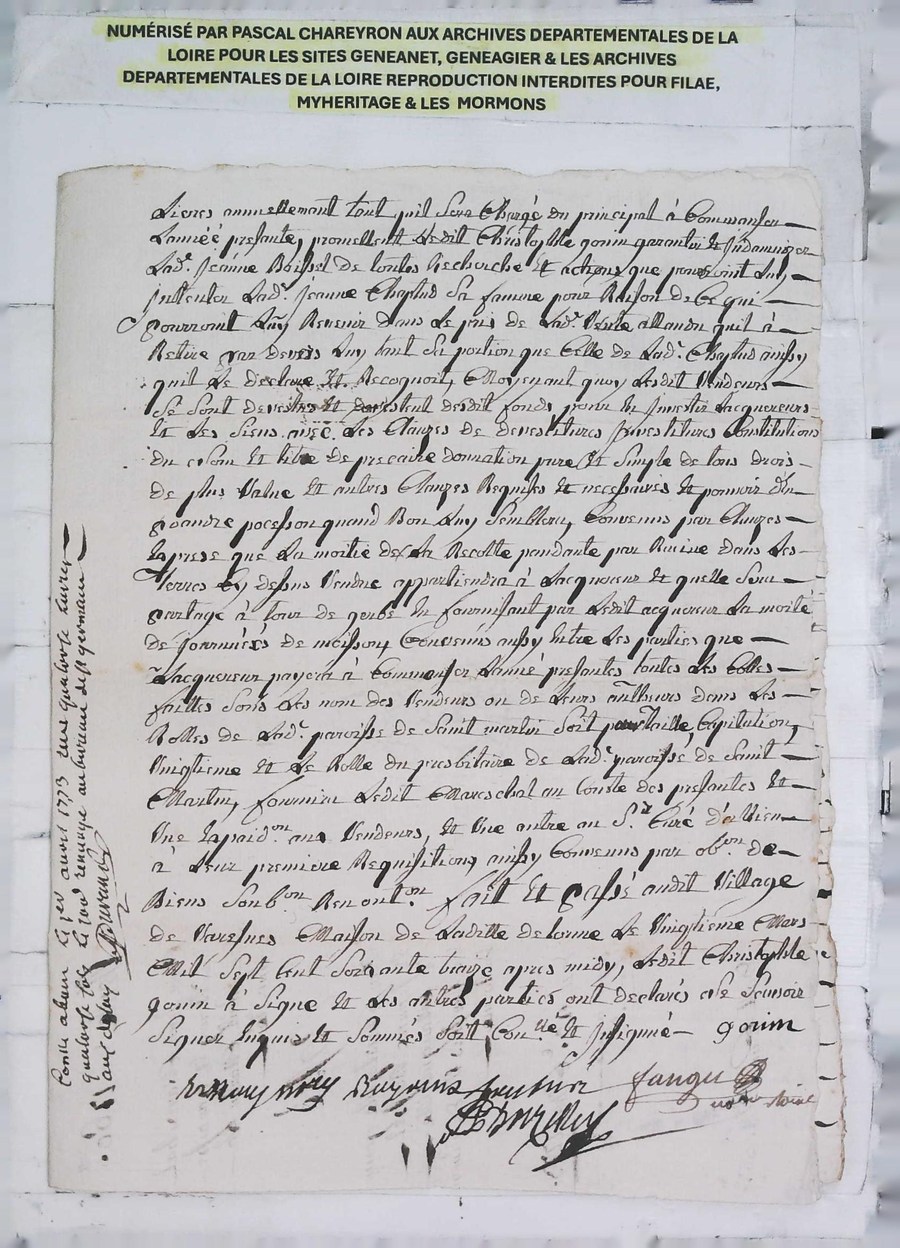 NUMÉRISÉ PAR PASCAL CHAREYRON AUX ARCHIVES DEPARTEMENTALES DE LA
LOIRE POUR LES SITES GENEANET, GENEAGIER & LES ARCHIVES
DEPARTEMENTALES DE LA LOIRE REPRODUCTION INTERDITES POUR FILAE,
MYHERITAGE & LES MORMONS
Livres annuellemant tant quil Sera Chargé du principal à Commanser
Lannéé presante, promettent Ledit Christophle gonin garantir Et Jndamnizer
Lad.e Jeanne Boisset de toutes Recherche Et actions que pourroint Luy
Jntenter Lad.e Jeanne Chaptud Sa famme pour Raison de Ce qui
pourroint Luy Revenir dans Le prix de Lad.e Vente attandu quil à
Retire par devers Luy tant Sa portion que Celle de Lad.e Chaptud ainsy
quil Le declare Et Recognoit, Moyenant quoy Lesdit Vendeurs
Se Sont devestus Et devestent desdit fonds pour En Jnvestir Lacquereurs
Et Les Siens avec Les Clauzes de devestitures Jnvestitures Constitutions
du nom Et titre de precaire donnation pure Et Simple de tous drois
de plus Value Et autres Clauzes Requises Et necessaires Et pouvoir d'en
prandre pocession quand Bon Luy Semblera, Convenus par Clauzes
Expresse que La moitié de La Recolte pandante par Racine dans Les
Terres Cy dessus Vendue appartiendra à Lacquereur Et quelle Sera
partagé à tour de gerbe En fournissant par Ledit acquereur La moitié
de Journéés de moison, Convenus aussy Entre Les parties que
Lacquereur payera à Commanser Lanné presantes toutes Les Cottes
faittes Sous Les nom des Vendeurs ou de Leurs autheurs dans Les
Rolles de Lad.e paroisse de Saint martin Soit pour taille, Capitation,
Vingtieme Et Le Rolle du presbitaire de Lad.e paroisse de Saint
Martin, fournira Ledit Mareschal au Conte des presantes Et
Une Expaid.on aux Vendeurs, Et Une autre au S.r Curé
à Leur premiere Requisition, aussy Convenus par ob.on de
Biens Soub.on Renont.on fait Et passé audit Village
de Varesnes Maison de Ladite delorme Le Vingtieme Mars
Mil Sept Cent Soixante traize apres midy, Ledit Christophle
gonin à Signé Et Les autres parties ont declarés ne Scavoir
Signer Enquis Et Sommés Soit Con.llé Et Jnsignué gonin